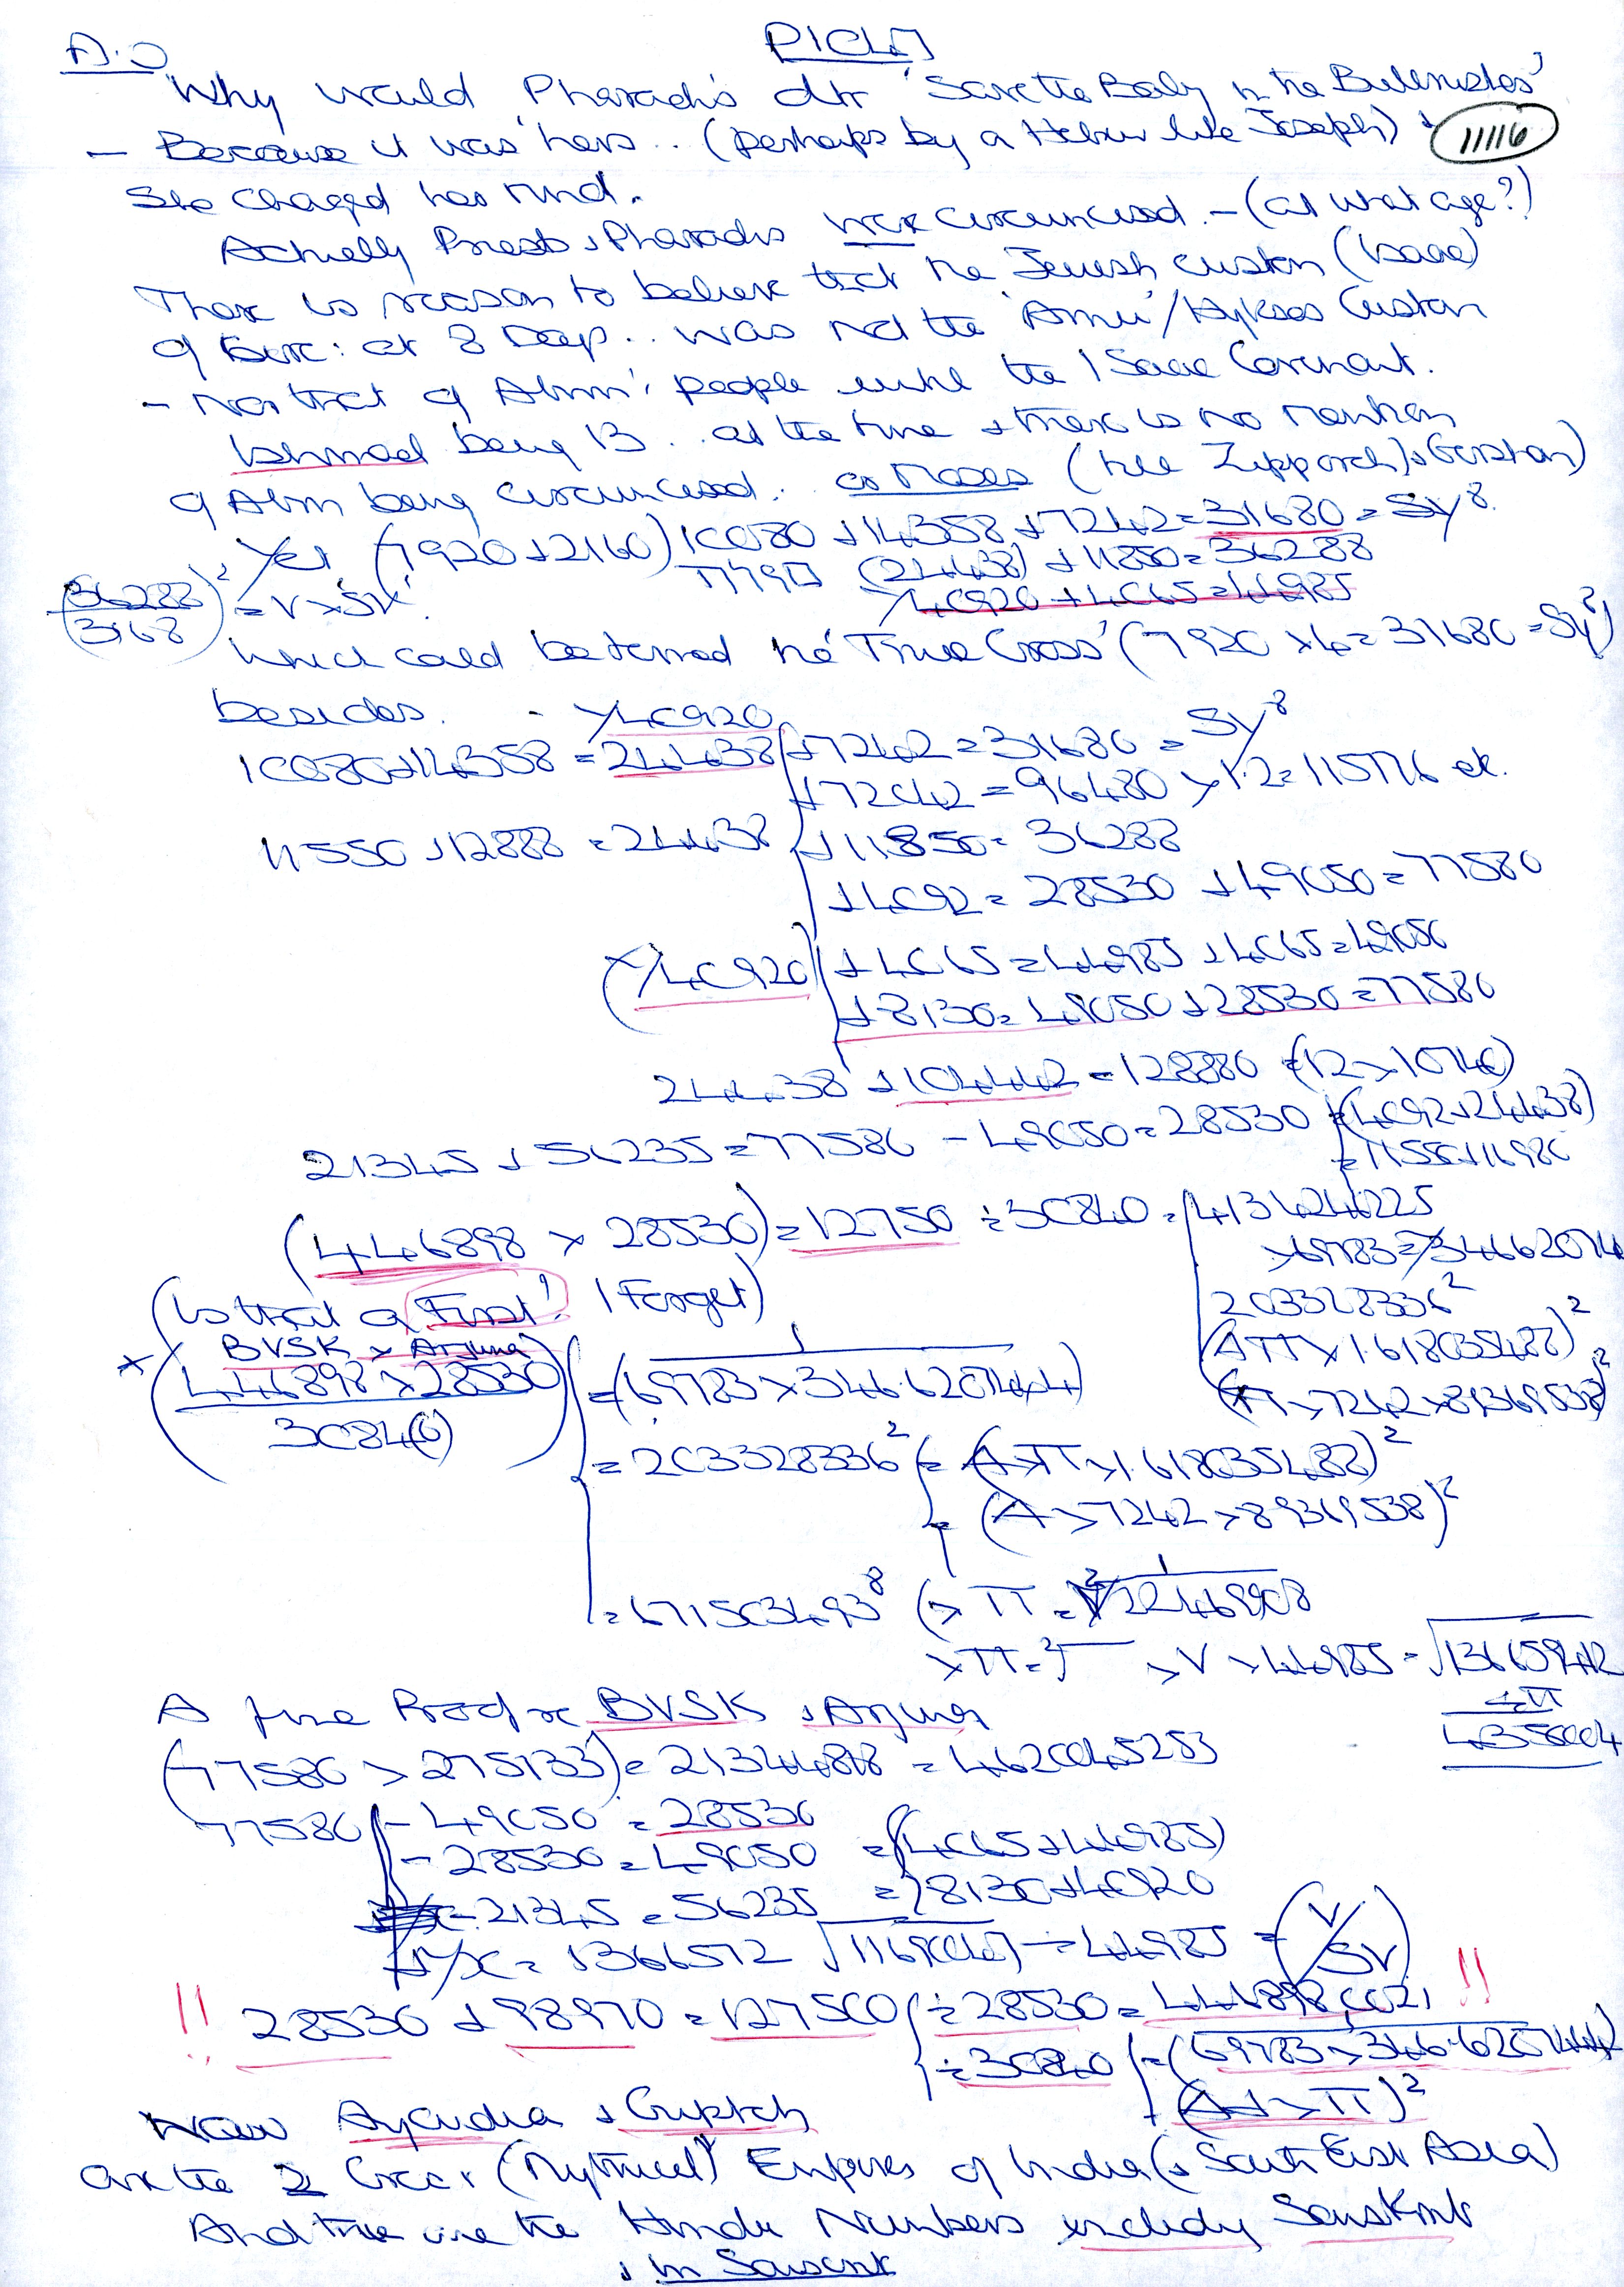 A.O
Why would Pharaoh's dtr 'Save the Baby in the Bullrushes'
- Because it was hers .. (perhaps by a Hebrew like Joseph) +
11116
She changed her mind.
Actually Priests + Pharaohs were circumcised. - (at what age?)
There is reason to believe that the Jewish custom (Isaac)
of Circ: at 8 Days .. was not the 'Amu'/Hyksos Custom
- Nor that of Abm's people until the Isaac Covenant.
Ishmael being 13 .. at the time + there is no mention
of Abm being circumcised. or Moses (till Zipporah) + Gershon)
Yet (7920 + 2160) 10080 + 14358 + 7242 = 31680 = SY⁸
(24438) + 11850 = 36288
40920 + 4065 = 44985
(36288/3168)² = V × SK
which could be termed the 'True Cross' (7920 × 4 = 31680 = SY⁸)
besides. - 40920
10080 + 14358 = 24438 + 7242 = 31680 = SY⁸
+ 72042 = 96480 × 1.2 = 115776 etc.
11550 + 12888 = 24438 + 11850 = 36288
+ 4092 = 28530 + 49050 = 77580
40920 + 4065 = 44985 + 4065 = 49050
+ 8130 = 49050 + 28530 = 77580
24438 + 104442 = 128880 = (12 × 1074)
21345 + 56235 = 77580 - 49050 = 28530 = (4092 + 24438)
= 11550 + 16980
(446898 × 28530) = 12750 ÷ 30840 = 4134241225
× 69783 = 34662074
(Is that a 'First'! I Forget) 203328336²
BVSK × Arjuna (A π × 1.618035488)²
(446898 × 28530 / 3084(0)) = (1 / 69783 × 346.6207444)
= 203328336² = (A × π × 1.618035488)²
= (A × 7242 × 89369538)²
= 671503493⁸ (× π = 1 / 22468908
× π = × V × 44985 = √136659412
÷ π
4350004
A fine Proof re BVSK + Arjuna
(77580 × 275133) = 21344818 = 462045253
77580 - 49050 = 28530
- 28530 = 49050 = (4065 + 44985)
- 21345 = 56235 = 8130 + 40920
= 1366572 ÷ 44985 = (V/SV)
!! 28530 + 98970 = 127500 ÷ 28530 = 446898 !!
÷ 30840 = (69783 × 346.6207444)
Now Ayudia + Guptch
are the 2 Great (Mythical) Empires of India (+ South East Asia)
And these are the Hindu Numbers including Sanskrit
+ in Sanscrit